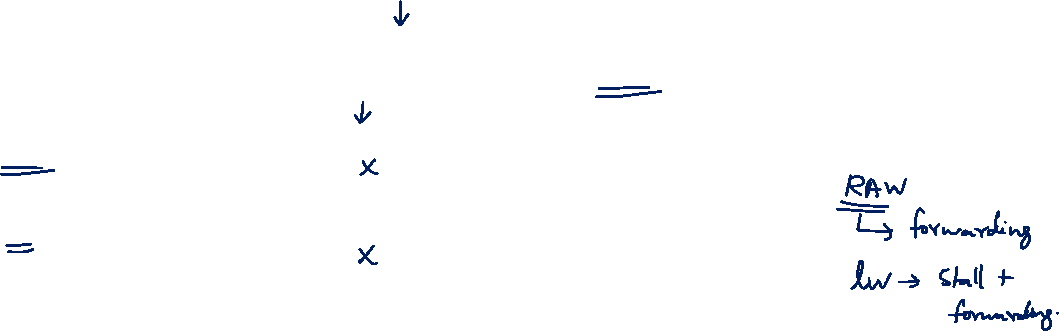 ↓
↓
x
RAW
↳ forwarding
x
lw → stall +
forwarding.